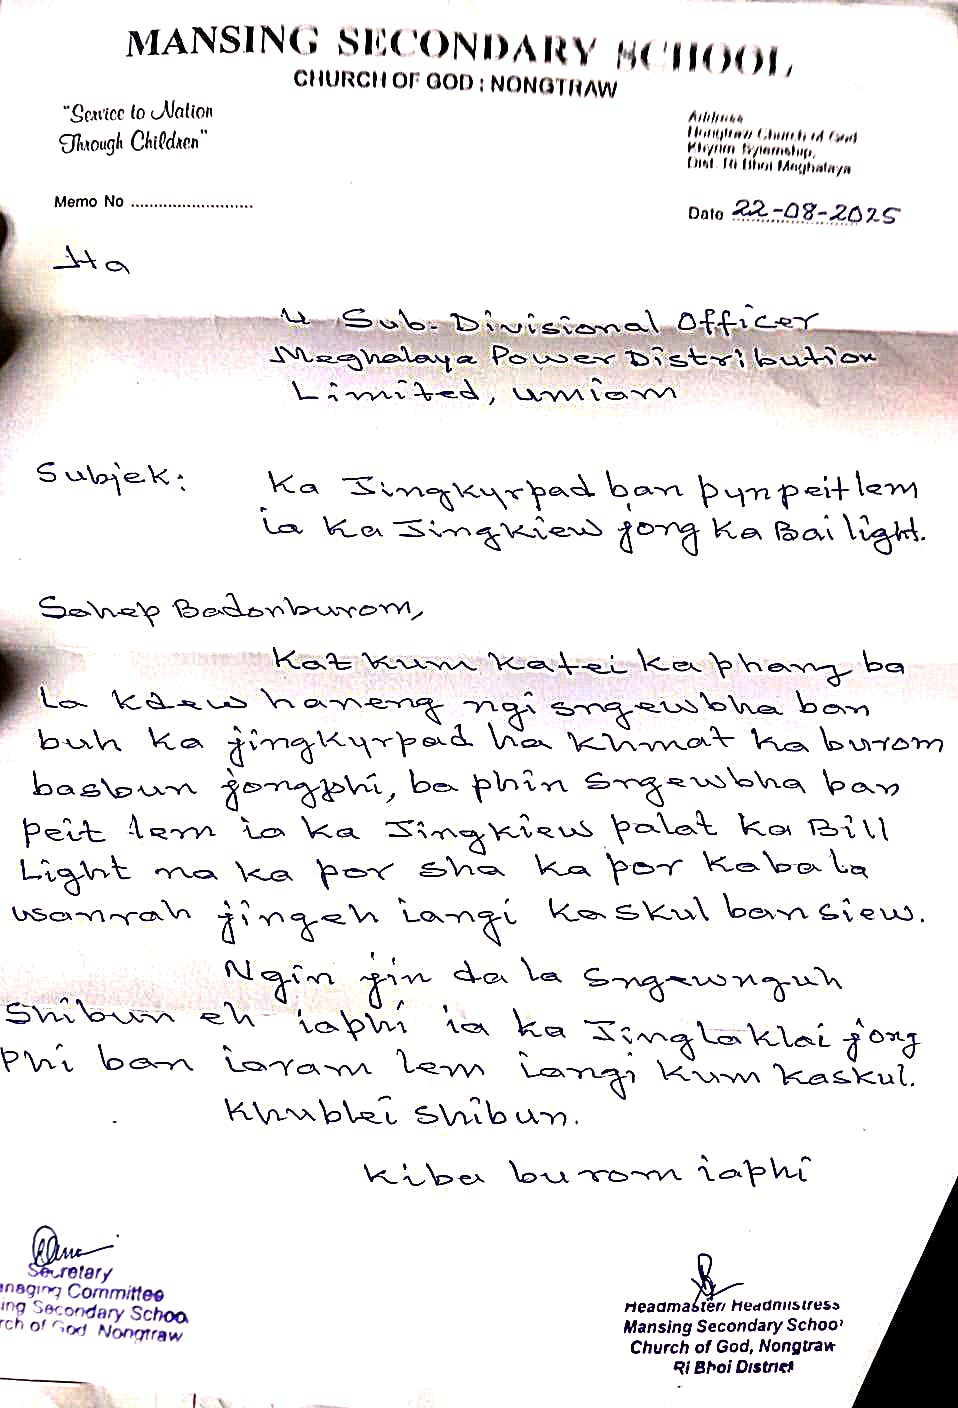 MANSING SECONDARY SCHOOL
CHURCH OF GOD : NONGTRAW
"Service to Nation
Through Children"
Address
Nongtraw Church of God
Khyrim Syiemship,
Dist. Ri Bhoi Meghalaya
Memo No ..........................
Date 22-08-2025
Ha
U Sub-Divisional Officer
Meghalaya Power Distribution
Limited, Umiam
Subjek: Ka Jingkyrpad ban pynpeitlem
ia ka Jingkiew jong ka Bai light.
Sahep Badonburom,
Kat kum katei ka phang ba
la kdew haneng ngi sngewbha ban
buh ka jingkyrpad ha khmat ka burom
basbun jongphi, ba phin sngewbha ban
peit lem ia ka Jingkiew palat ka Bill
Light na ka por sha ka por kaba la
usanrah jingeh iangi kaskul ban siew.
Ngin jin da la sngewnguh
shibun eh iaphi ia ka Jinglaklai jong
phi ban iaram lem iangi kum kaskul.
Khublei shibun.
Kiba burom iaphi
Secretary
anaging Committee
ing Secondary School
rch of God Nongtraw
Headmaster/ Headmistress
Mansing Secondary School
Church of God, Nongtraw
Ri Bhoi District